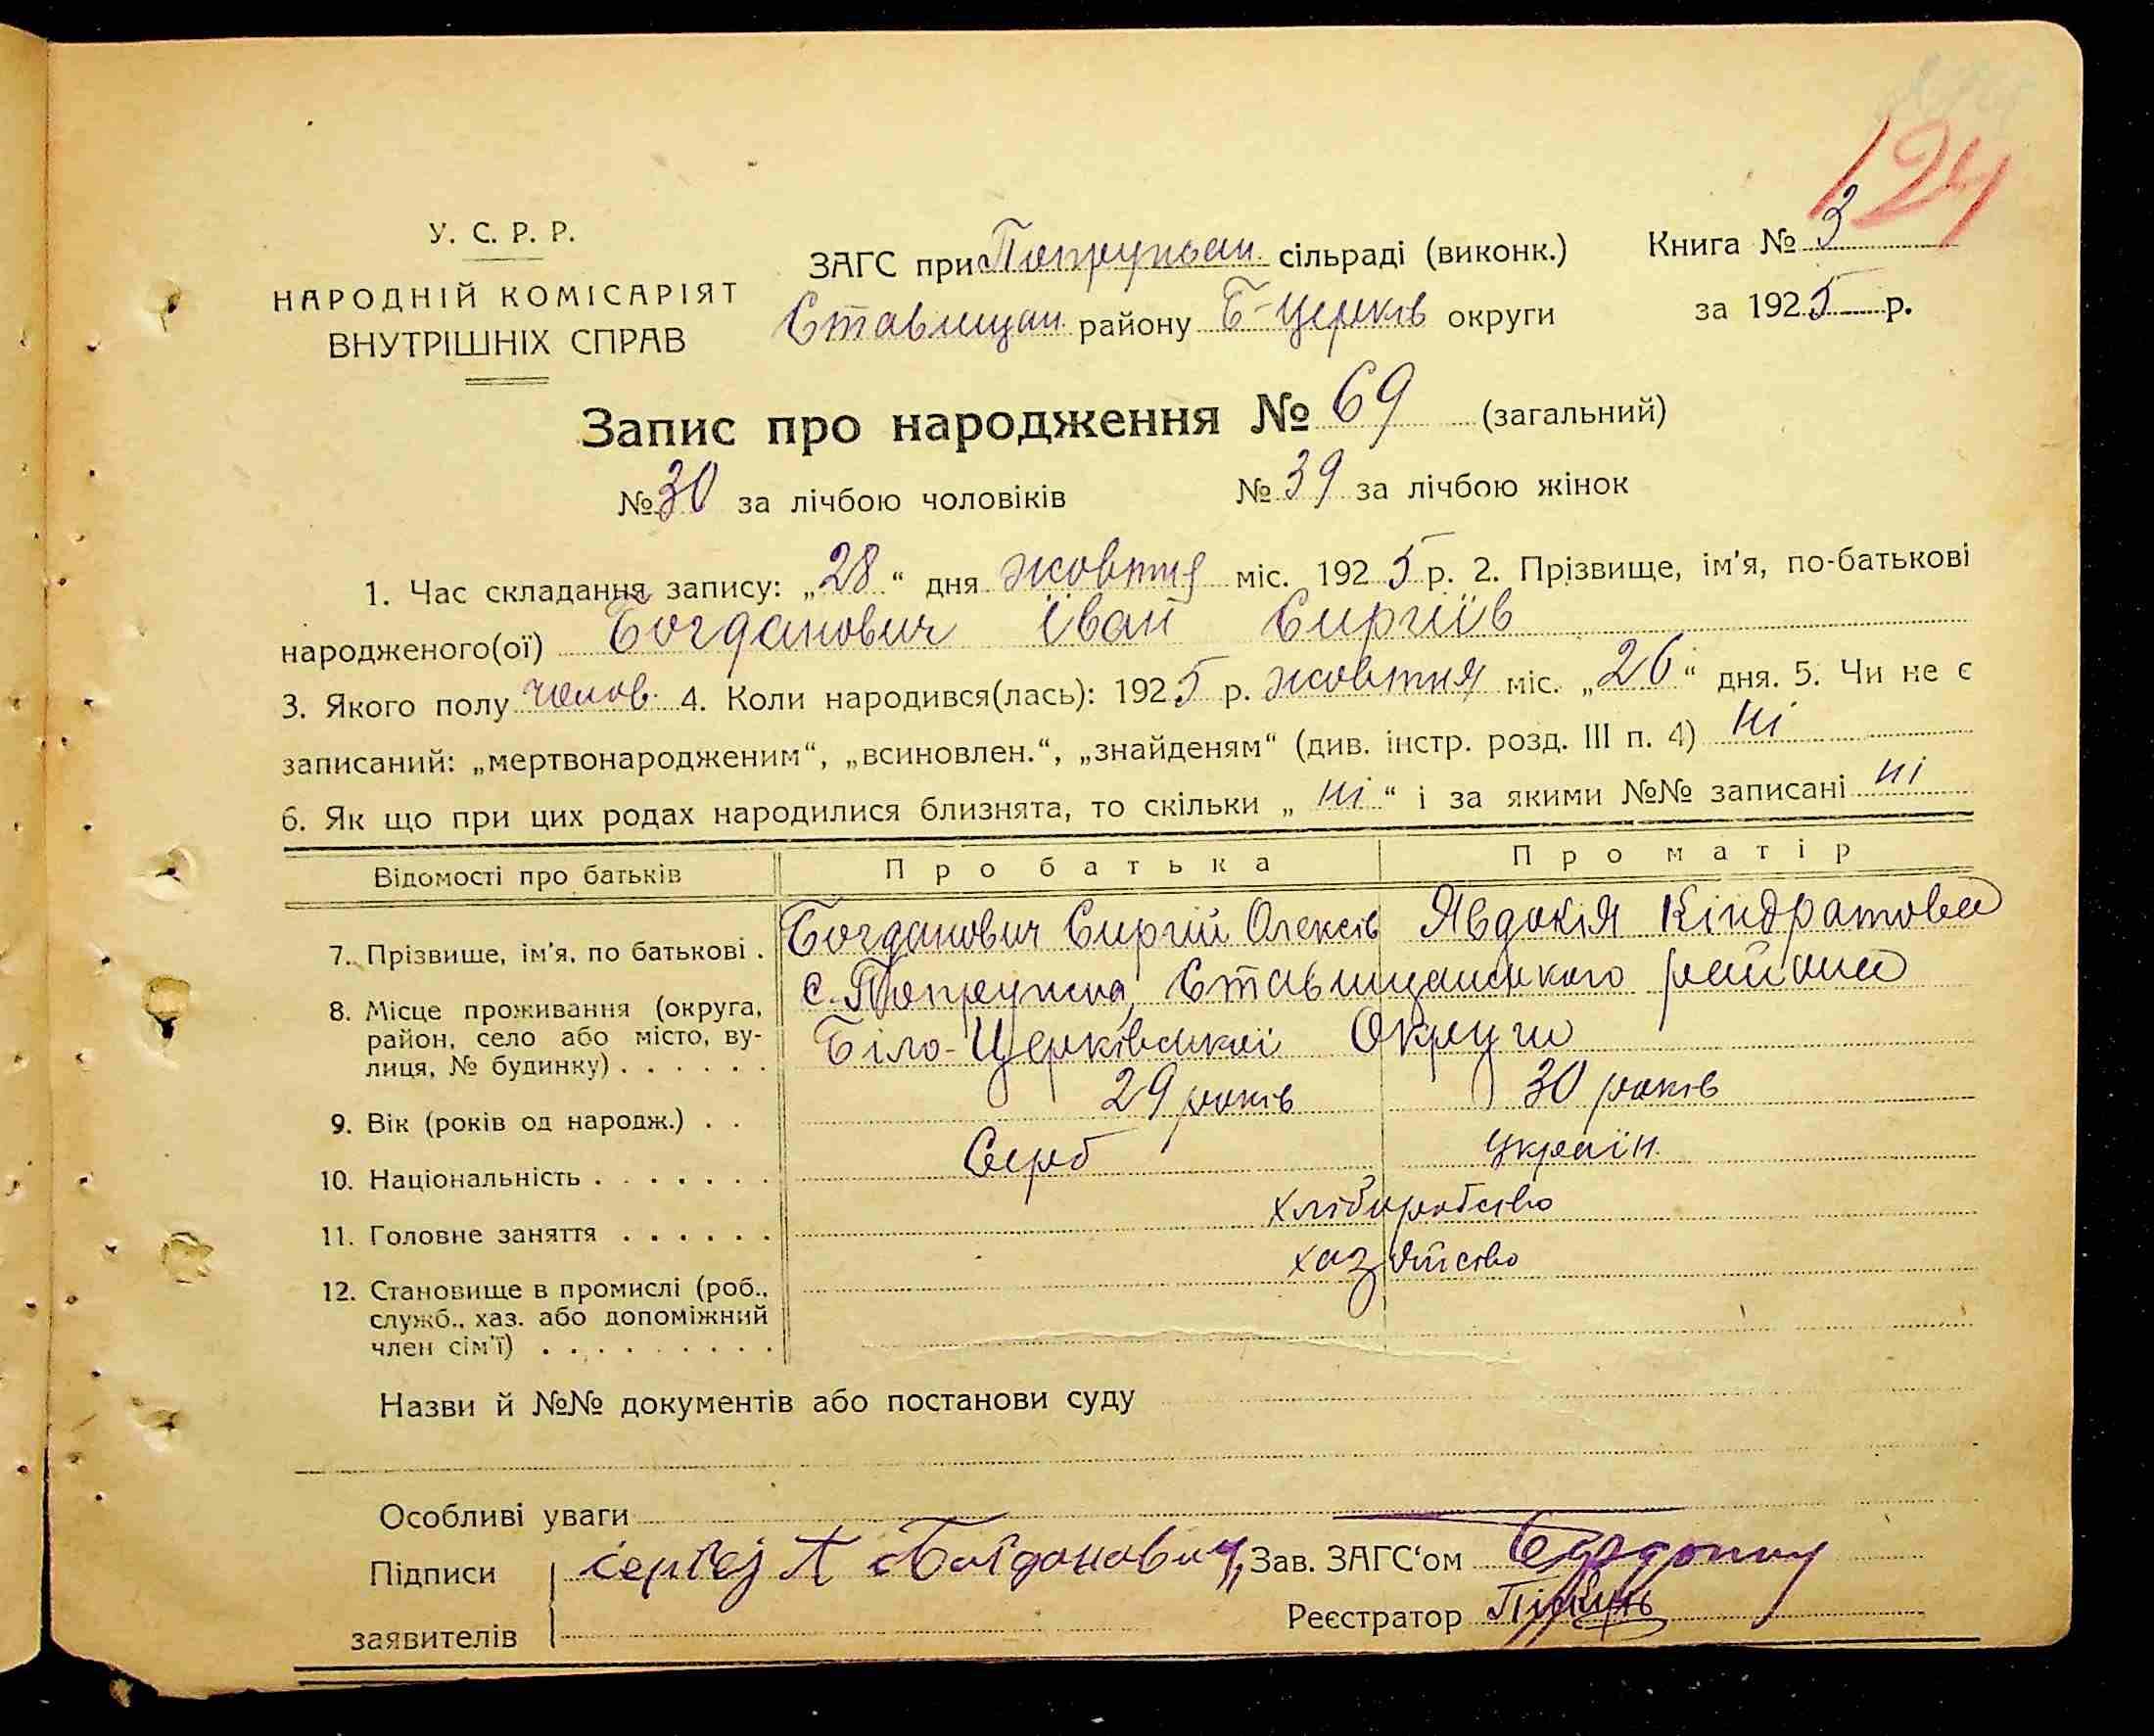 124
У. С. Р. Р.
НАРОДНІЙ КОМІСАРІЯТ
ВНУТРІШНІХ СПРАВ
ЗАГС при сільраді (виконк.)
Ставищан району Б-Церків округи
Книга № 3
за 1925 р.
Запис про народження № 69 (загальний)
№ 30 за лічбою чоловіків № 39 за лічбою жінок
1. Час складання запису: „28“ дня жовтня міс. 1925 р. 2. Прізвище, ім'я, по-батькові
народженого(ої) Богданович Іван Сиргіїв
3. Якого полу чолов. 4. Коли народився(лась): 1925 р. жовтня міс. „26“ дня. 5. Чи не є
записаний: „мертвонародженим“, „всиновлен.“, „знайденям“ (див. інстр. розд. III п. 4) ні
6. Як що при цих родах народилися близнята, то скільки „ні“ і за якими №№ записані ні
Відомості про батьків Про батька Про матір
7. Прізвище, ім'я, по батькові . Богданович Сиргій Олексів Явдокія Кіндратова
8. Місце проживання (округа, район, село або місто, вулиця, № будинку) . . . . . . с. Попружна, Ставищанського района
Біло-Церківської Округи
9. Вік (років од народж.) . . 29 років 30 років
10. Національність . . . . . . . Серб Україн.
11. Головне заняття . . . . . . хліборобство
12. Становище в промислі (роб., служб., хаз. або допоміжний член сім'ї) . . . . . . . . . хазяйство
Назви й №№ документів або постанови суду
Особливі уваги
Підписи заявителів Богдановичъ
Зав. ЗАГС'ом
Реєстратор